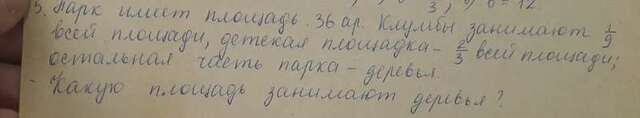 3, 9) 6 = 12
3. Парк имеет площадь 36 ар. Клумбы занимают 1/9
всей площади, детская площадка - 2/3 всей площади;
остальная часть парка - деревья.
- Какую площадь занимают деревья?